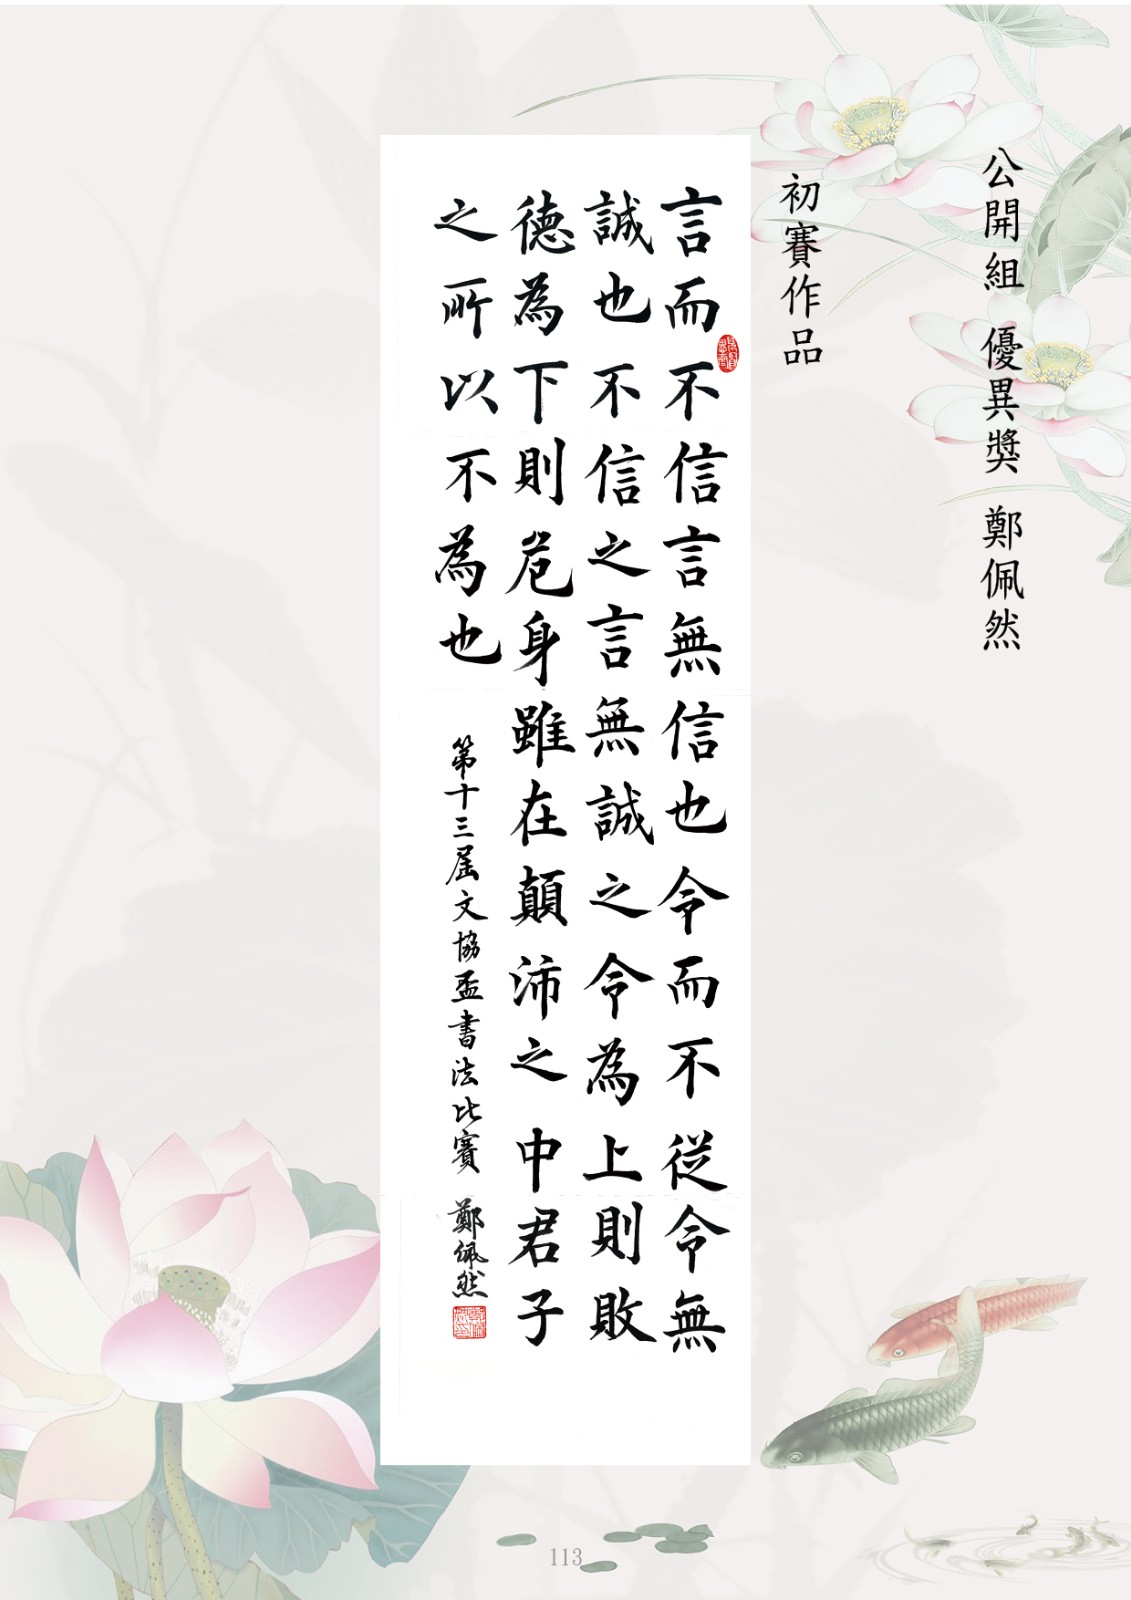 公開組 優異獎 鄭佩然
初賽作品
言而不信言無信也令而不從令無
誠也不信之言無誠之令為上則敗
德為下則危身雖在顛沛之中君子
之所以不為也
第十三屆文協盃書法比賽 鄭佩然
113